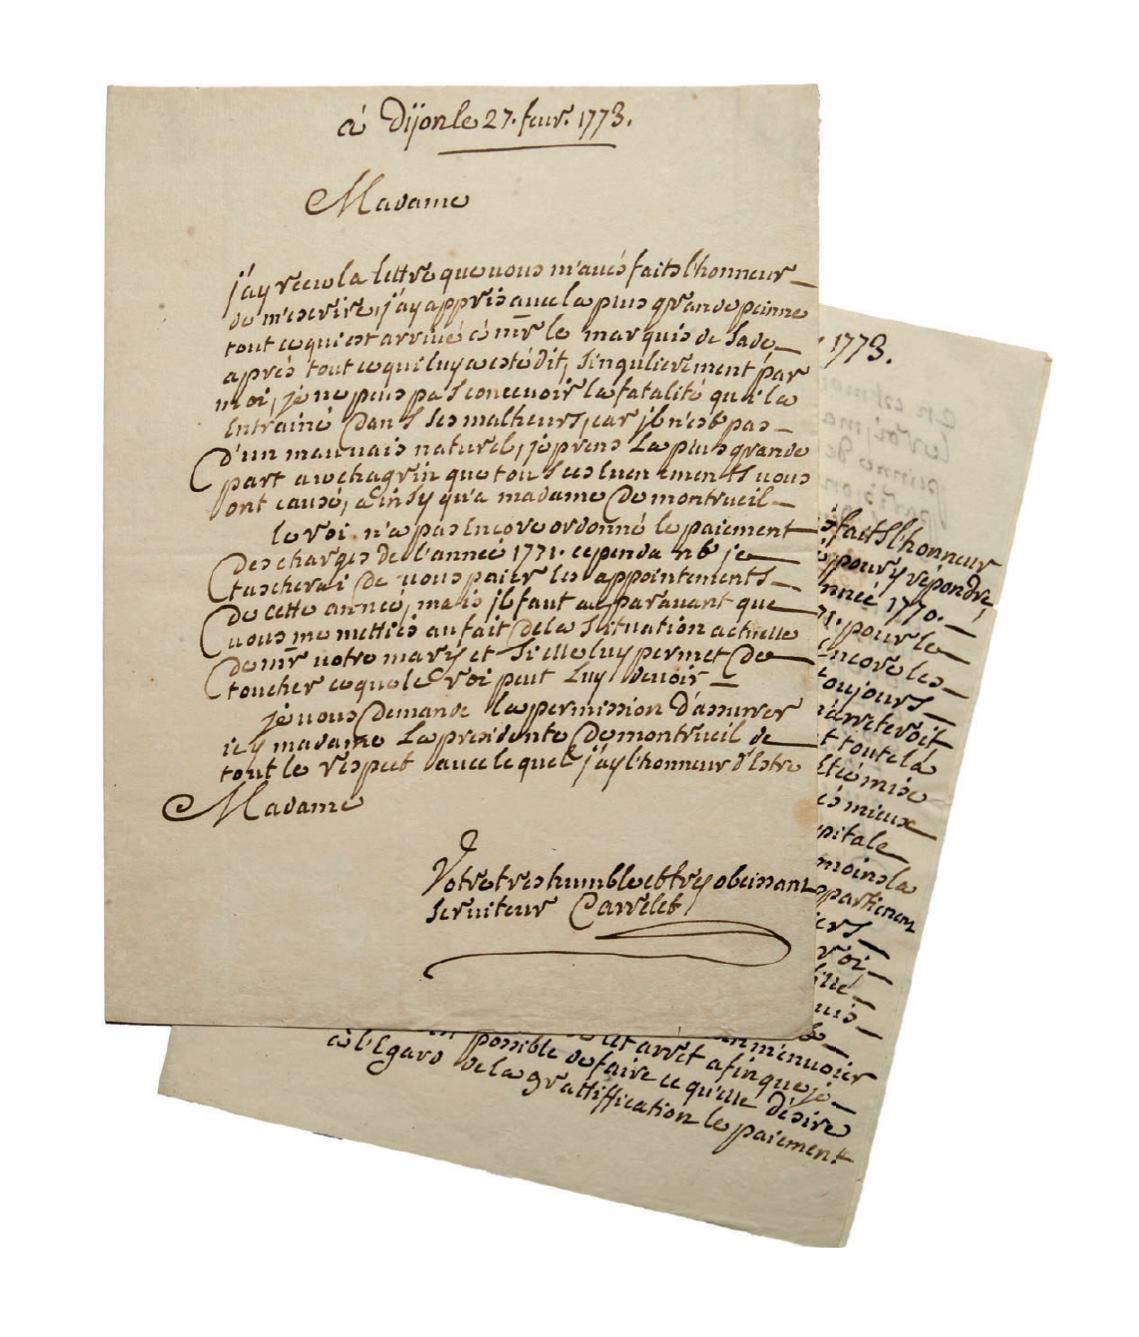 à Dijon le 27. feur. 1773.
Madame
j'ay receu la lettre que uous m'aués faits l'honneur
de m'escrire, j'ay appris auec la plus grande peinne
tout ce qui est arriué à mr. le marquis de Sade
après tout ce qui luy a esté dit, singulierement par
moi, je ne puis pas conceuoir la fatalité qui la
Entrainé Dans Ses malheurs, car jl n'est pas
D'un mauuais naturel, je prens La plus grande
part au chagrin que tous ces Euenements uous
ont causé, ainsy qu'a madame De montreuil
le roi n'a pas Encore ordonné le paiement
Des charges de l'année 1771. cependant je
tascherai De uous paier les appointements
De cette année, mais jl faut auparauant que
uous me mettiés au fait de la Situation actuelle
de mr. uotre mary et Si elle luy permet De
toucher ce que le roi peut Luy deuoir
je uous Demande la permission d'assurrer
icy madame La presidente De montreuil de
tout le respect auec lequel j'ay l'honneur d'Estre
Madame
Votre tres humble et tres obeissant
Seruiteur Carrelet
1773.
faits l'honneur
pour y repondre,
année 1770.
pour le
Encore les
toujours
arreteroit
toute la
mise
mieux
moins la
roi,
m'enuoier
arret afin que je
possible de faire ce qu'elle désire
à l'Egard de la grattiffication le paiement